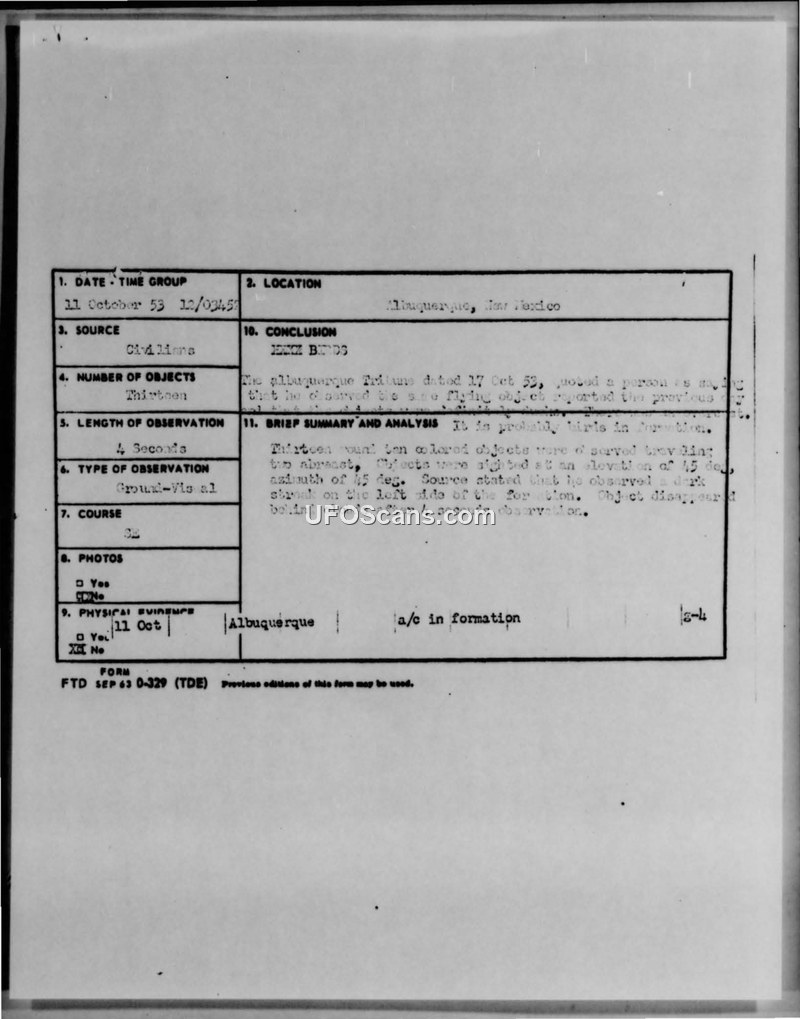 1. DATE - TIME GROUP
11 October 53 12/0345Z
2. LOCATION
Albuquerque, New Mexico
3. SOURCE
Civilians
10. CONCLUSION
BIRDS
4. NUMBER OF OBJECTS
Thirteen
The Albuquerque Tribune dated 17 Oct 53, quoted a person as saying
that he observed the same flying object reported the previous day
5. LENGTH OF OBSERVATION
4 Seconds
11. BRIEF SUMMARY AND ANALYSIS
It is probably birds in formation.
6. TYPE OF OBSERVATION
Ground-Visual
Thirteen round tan colored objects were observed traveling
two abreast, Objects were sighted at an elevation of 45 deg,
azimuth of 45 deg. Source stated that he observed a dark
streak on the left side of the formation. Object disappeared
behind after 4 seconds observation.
7. COURSE
8. PHOTOS
□ Yes
No
9. PHYSICAL EVIDENCE
□ Yes
XX No
11 Oct Albuquerque a/c in formation g-4
FORM
FTD SEP 63 0-329 (TDE) Previous editions of this form may be used.
UFOScans.com